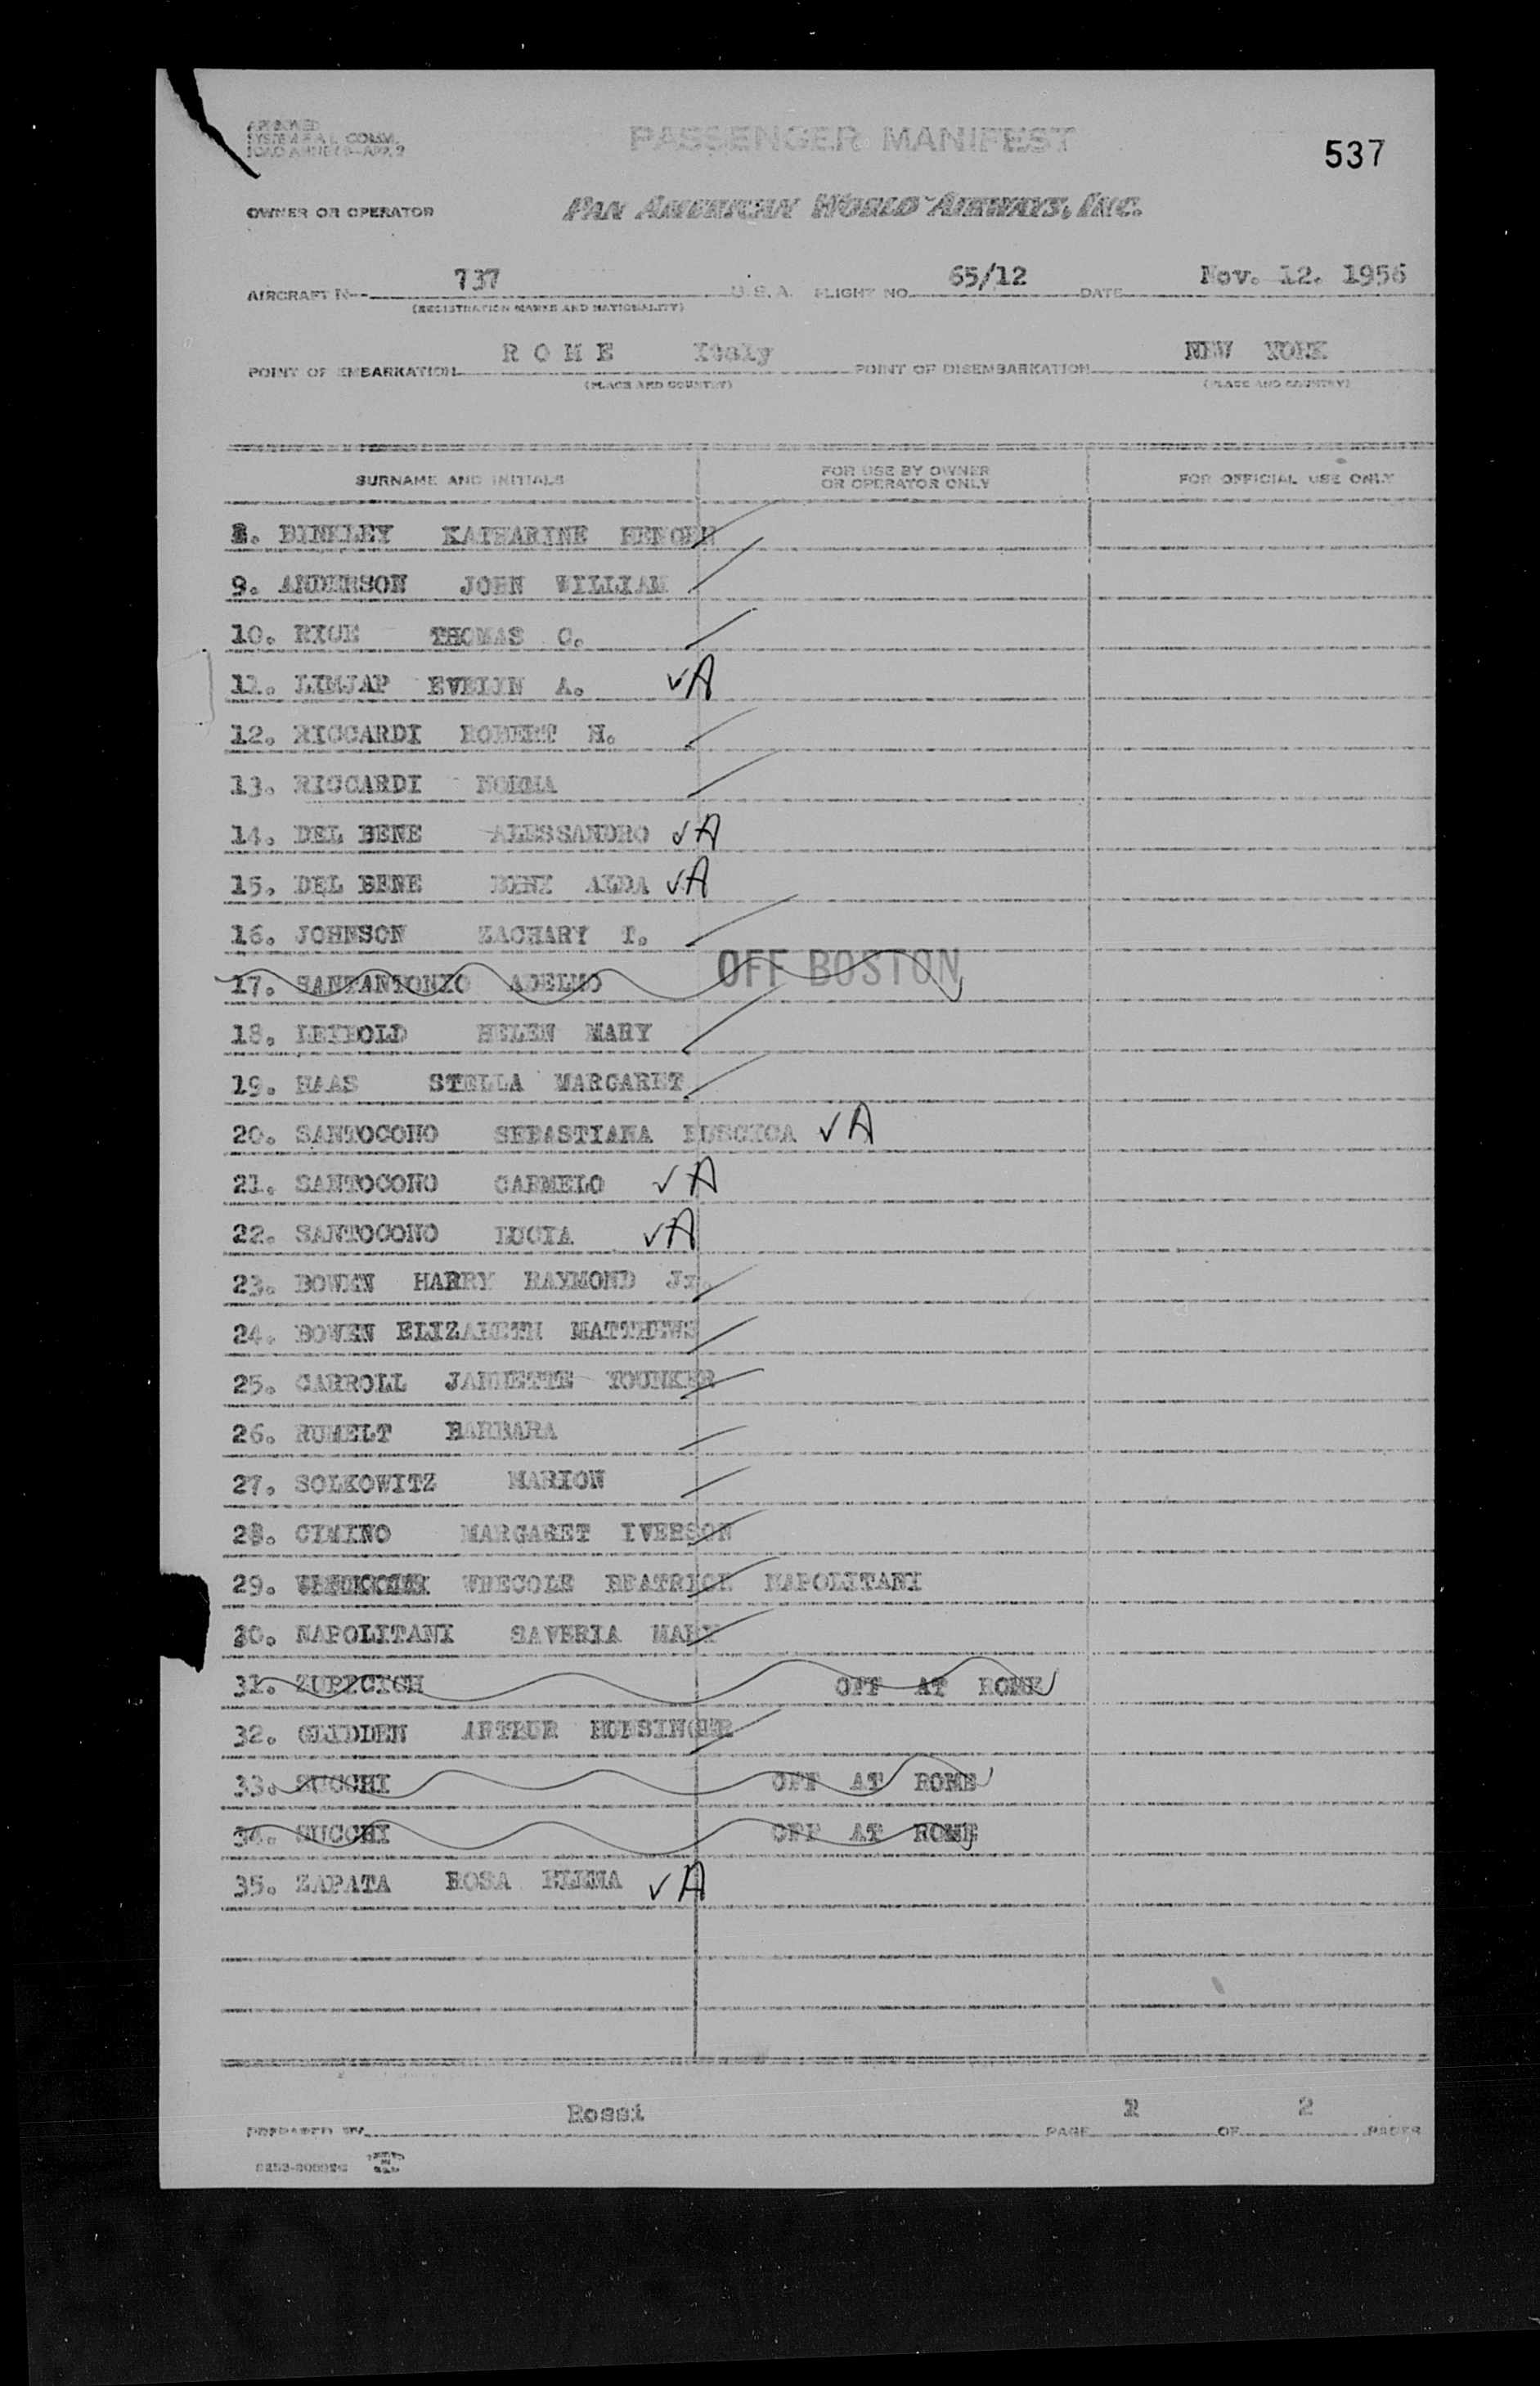 PASSENGER MANIFEST
537
OWNER OR OPERATOR PAN AMERICAN WORLD AIRWAYS, INC.
AIRCRAFT N 737 U.S.A. FLIGHT NO. 65/12 DATE Nov. 12. 1956
(REGISTRATION MARKS AND NATIONALITY)
POINT OF EMBARKATION ROME Italy POINT OF DISEMBARKATION NEW YORK
(PLACE AND COUNTRY) (PLACE AND COUNTRY)
SURNAME AND INITIALS FOR USE BY OWNER OR OPERATOR ONLY FOR OFFICIAL USE ONLY
8. BINKLEY KATHARINE
9. ANDERSON JOHN WILLIAM
10. RICE THOMAS C.
11. LIMJAP EVELYN A. ✓A
12. RICCARDI ROBERT H.
13. RICCARDI NORMA
14. DEL BENE ALESSANDRO ✓A
15. DEL BENE ALDA ✓A
16. JOHNSON ZACHARY T.
17. SANTANTONIO ADELMO OFF BOSTON
18. LEIBOLD HELEN MARY
19. HAAS STELLA MARGARET
20. SANTOCONO SEBASTIANA ✓A
21. SANTOCONO CARMELO ✓A
22. SANTOCONO LUCIA ✓A
23. BOWEN HARRY RAYMOND Jr.
24. BOWEN ELIZABETH MATTHEWS
25. CARROLL JANNETTE YOUNKER
26. RUMELT BARBARA
27. SOLKOWITZ MARION
28. CIMINO MARGARET IVERSON
29. BEATRICE NAPOLITANI
30. NAPOLITANI SAVERIA MARY
31. ZUPICICH OFF AT ROME
32. GLIDDEN ARTHUR HUNSINGER
33. SUCCHI OFF AT ROME
34. SUCCHI OFF AT ROME
35. ZAPATA ROSA ELENA ✓A
PREPARED BY Rossi PAGE 2 OF 2 PAGES